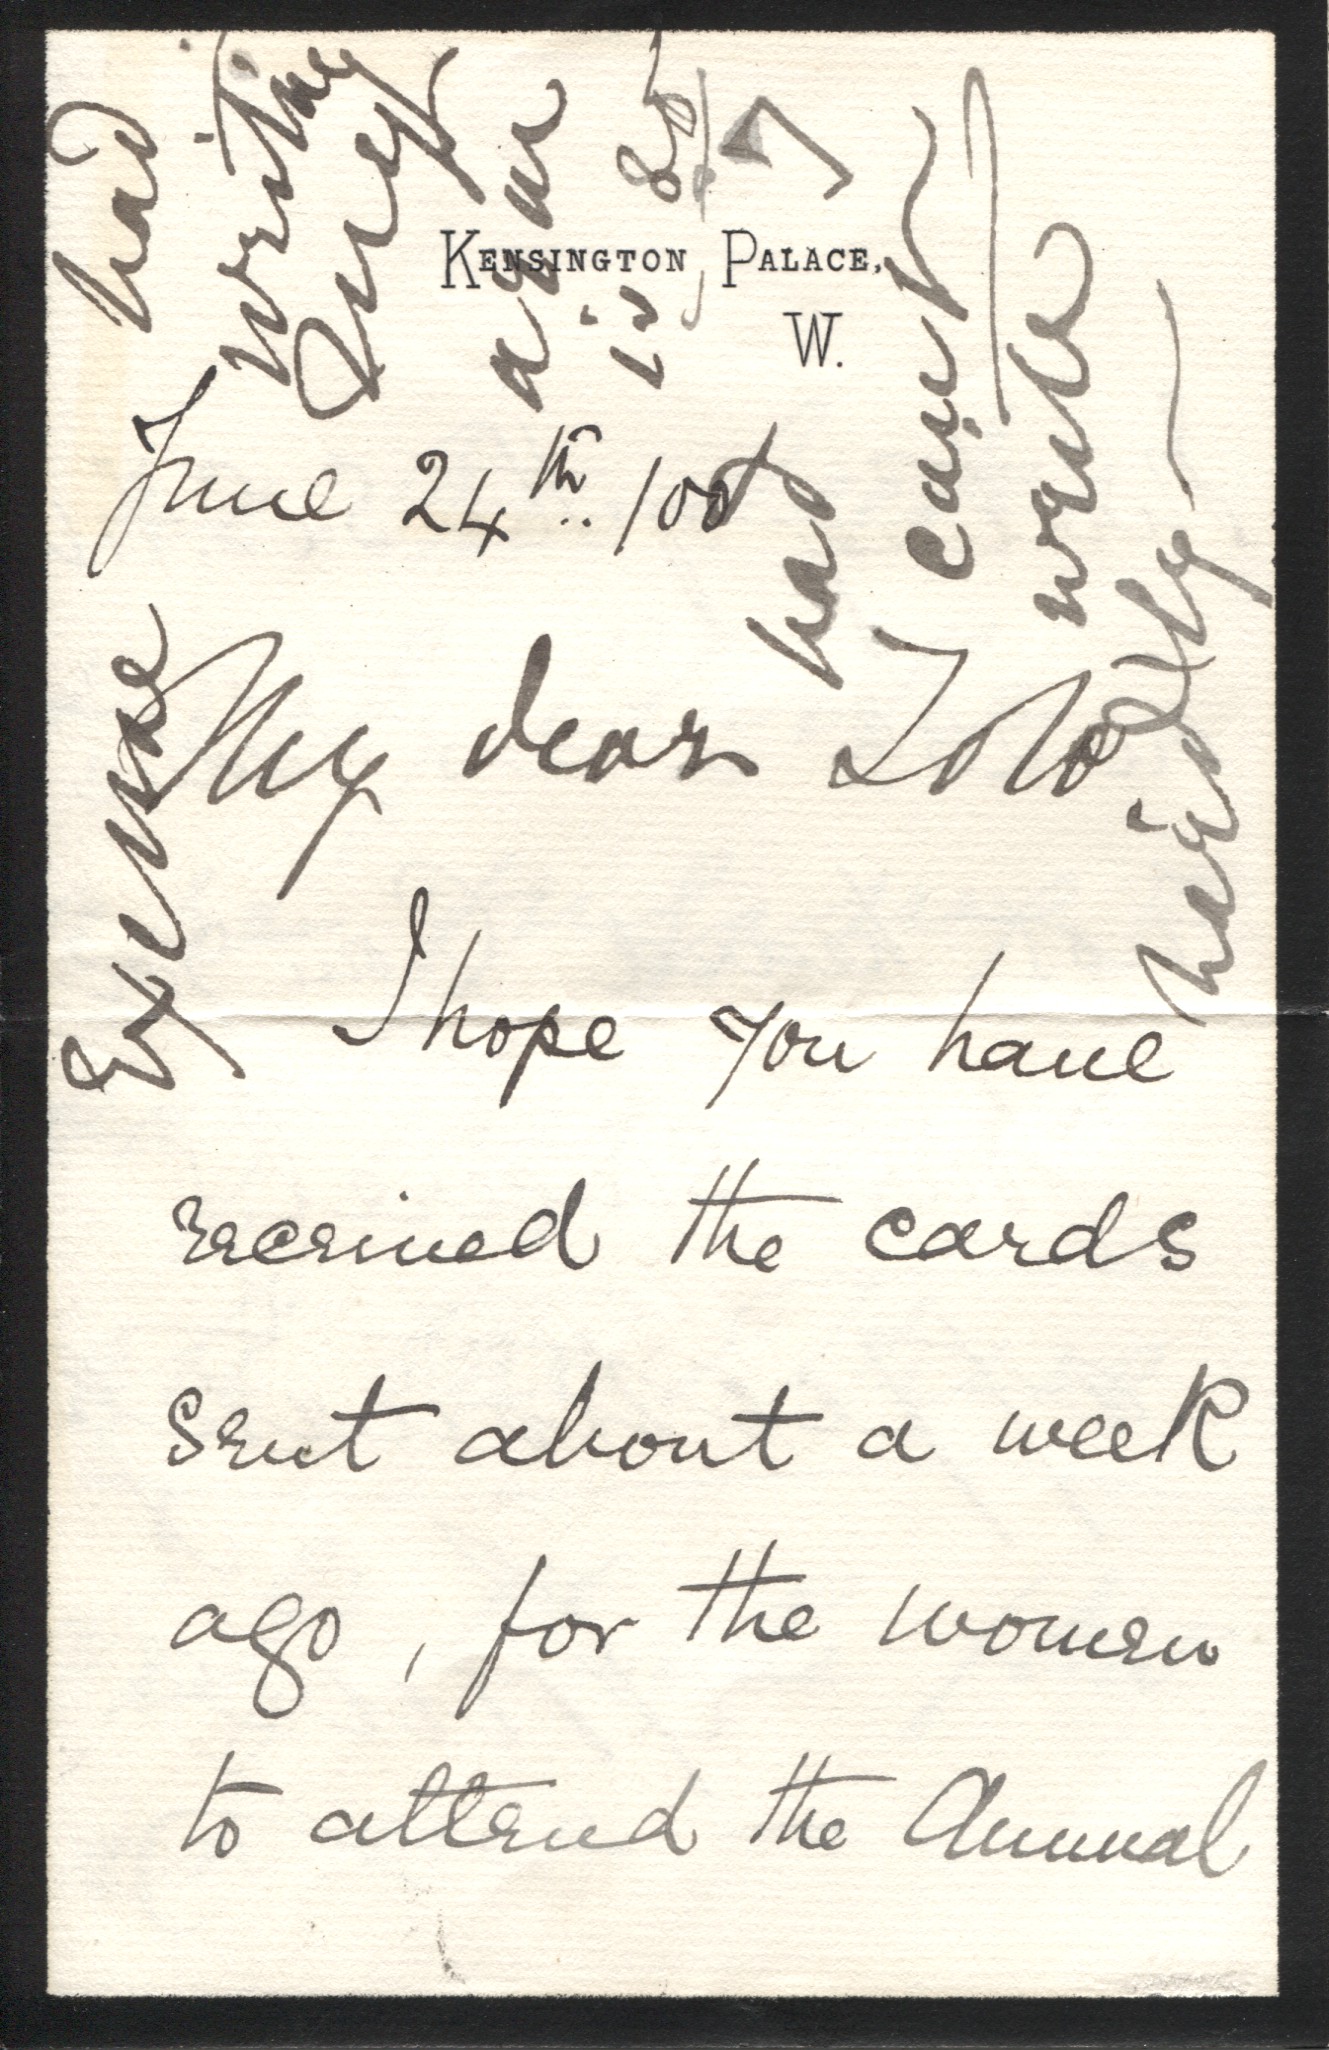 KENSINGTON PALACE,
W.
June 24th /00
My dear Lolo
I hope you have
received the cards
sent about a week
ago, for the women
to attend the Annual
Excuse bad
writing
my
arm
is so
bad I can't
write
hardly